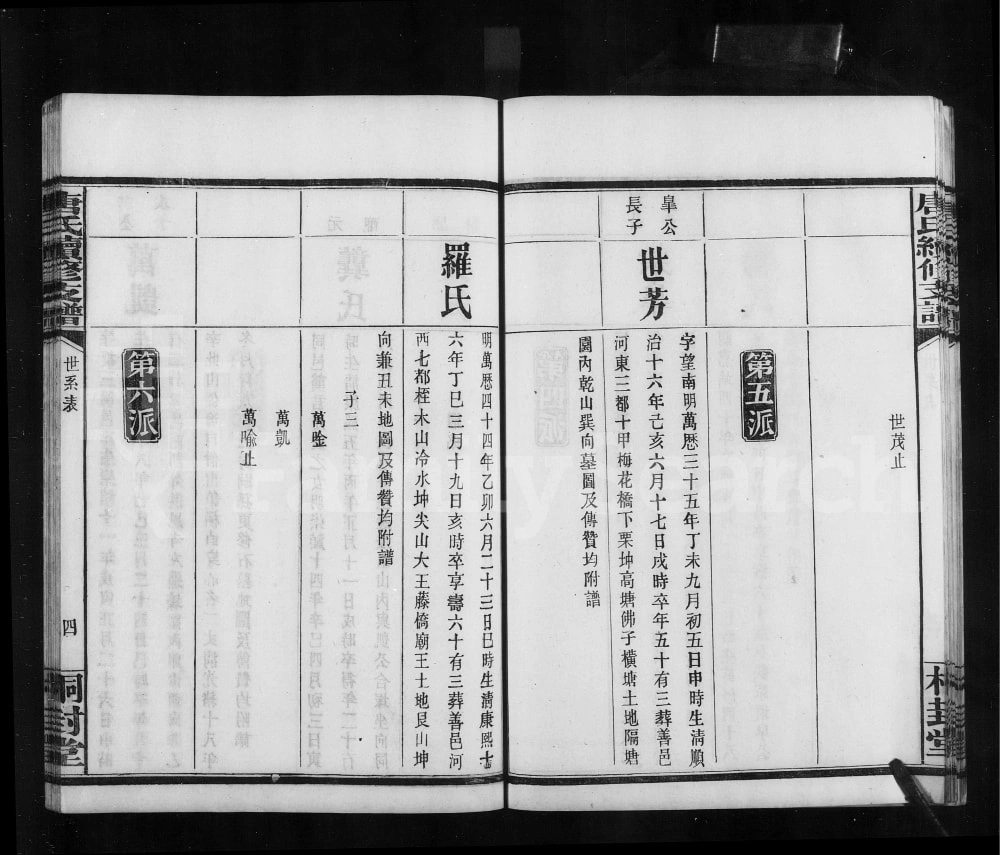 世茂止
第五派
臯公
長子
世芳
字望南明萬曆三十五年丁未九月初五日申時生淸順
治十六年己亥六月十七日戌時卒年五十有三葬善邑
河東三都十甲梅花橋下栗坤高塘佛子橫塘土地隔塘
園內乾山巽向墓圖及傳贊均附譜
羅氏
明萬曆四十四年乙卯六月二十三日巳時生淸康熙七
六年丁巳三月十九日亥時卒享壽六十有三葬善邑河
西七都桎木山冷水坤尖山大王藤僑廟王土地艮山坤
向兼丑未地圖及傳贊均附譜
子三
萬
萬凱
萬喩止
第六派
唐氏續修支譜
世系表
四
桐封堂